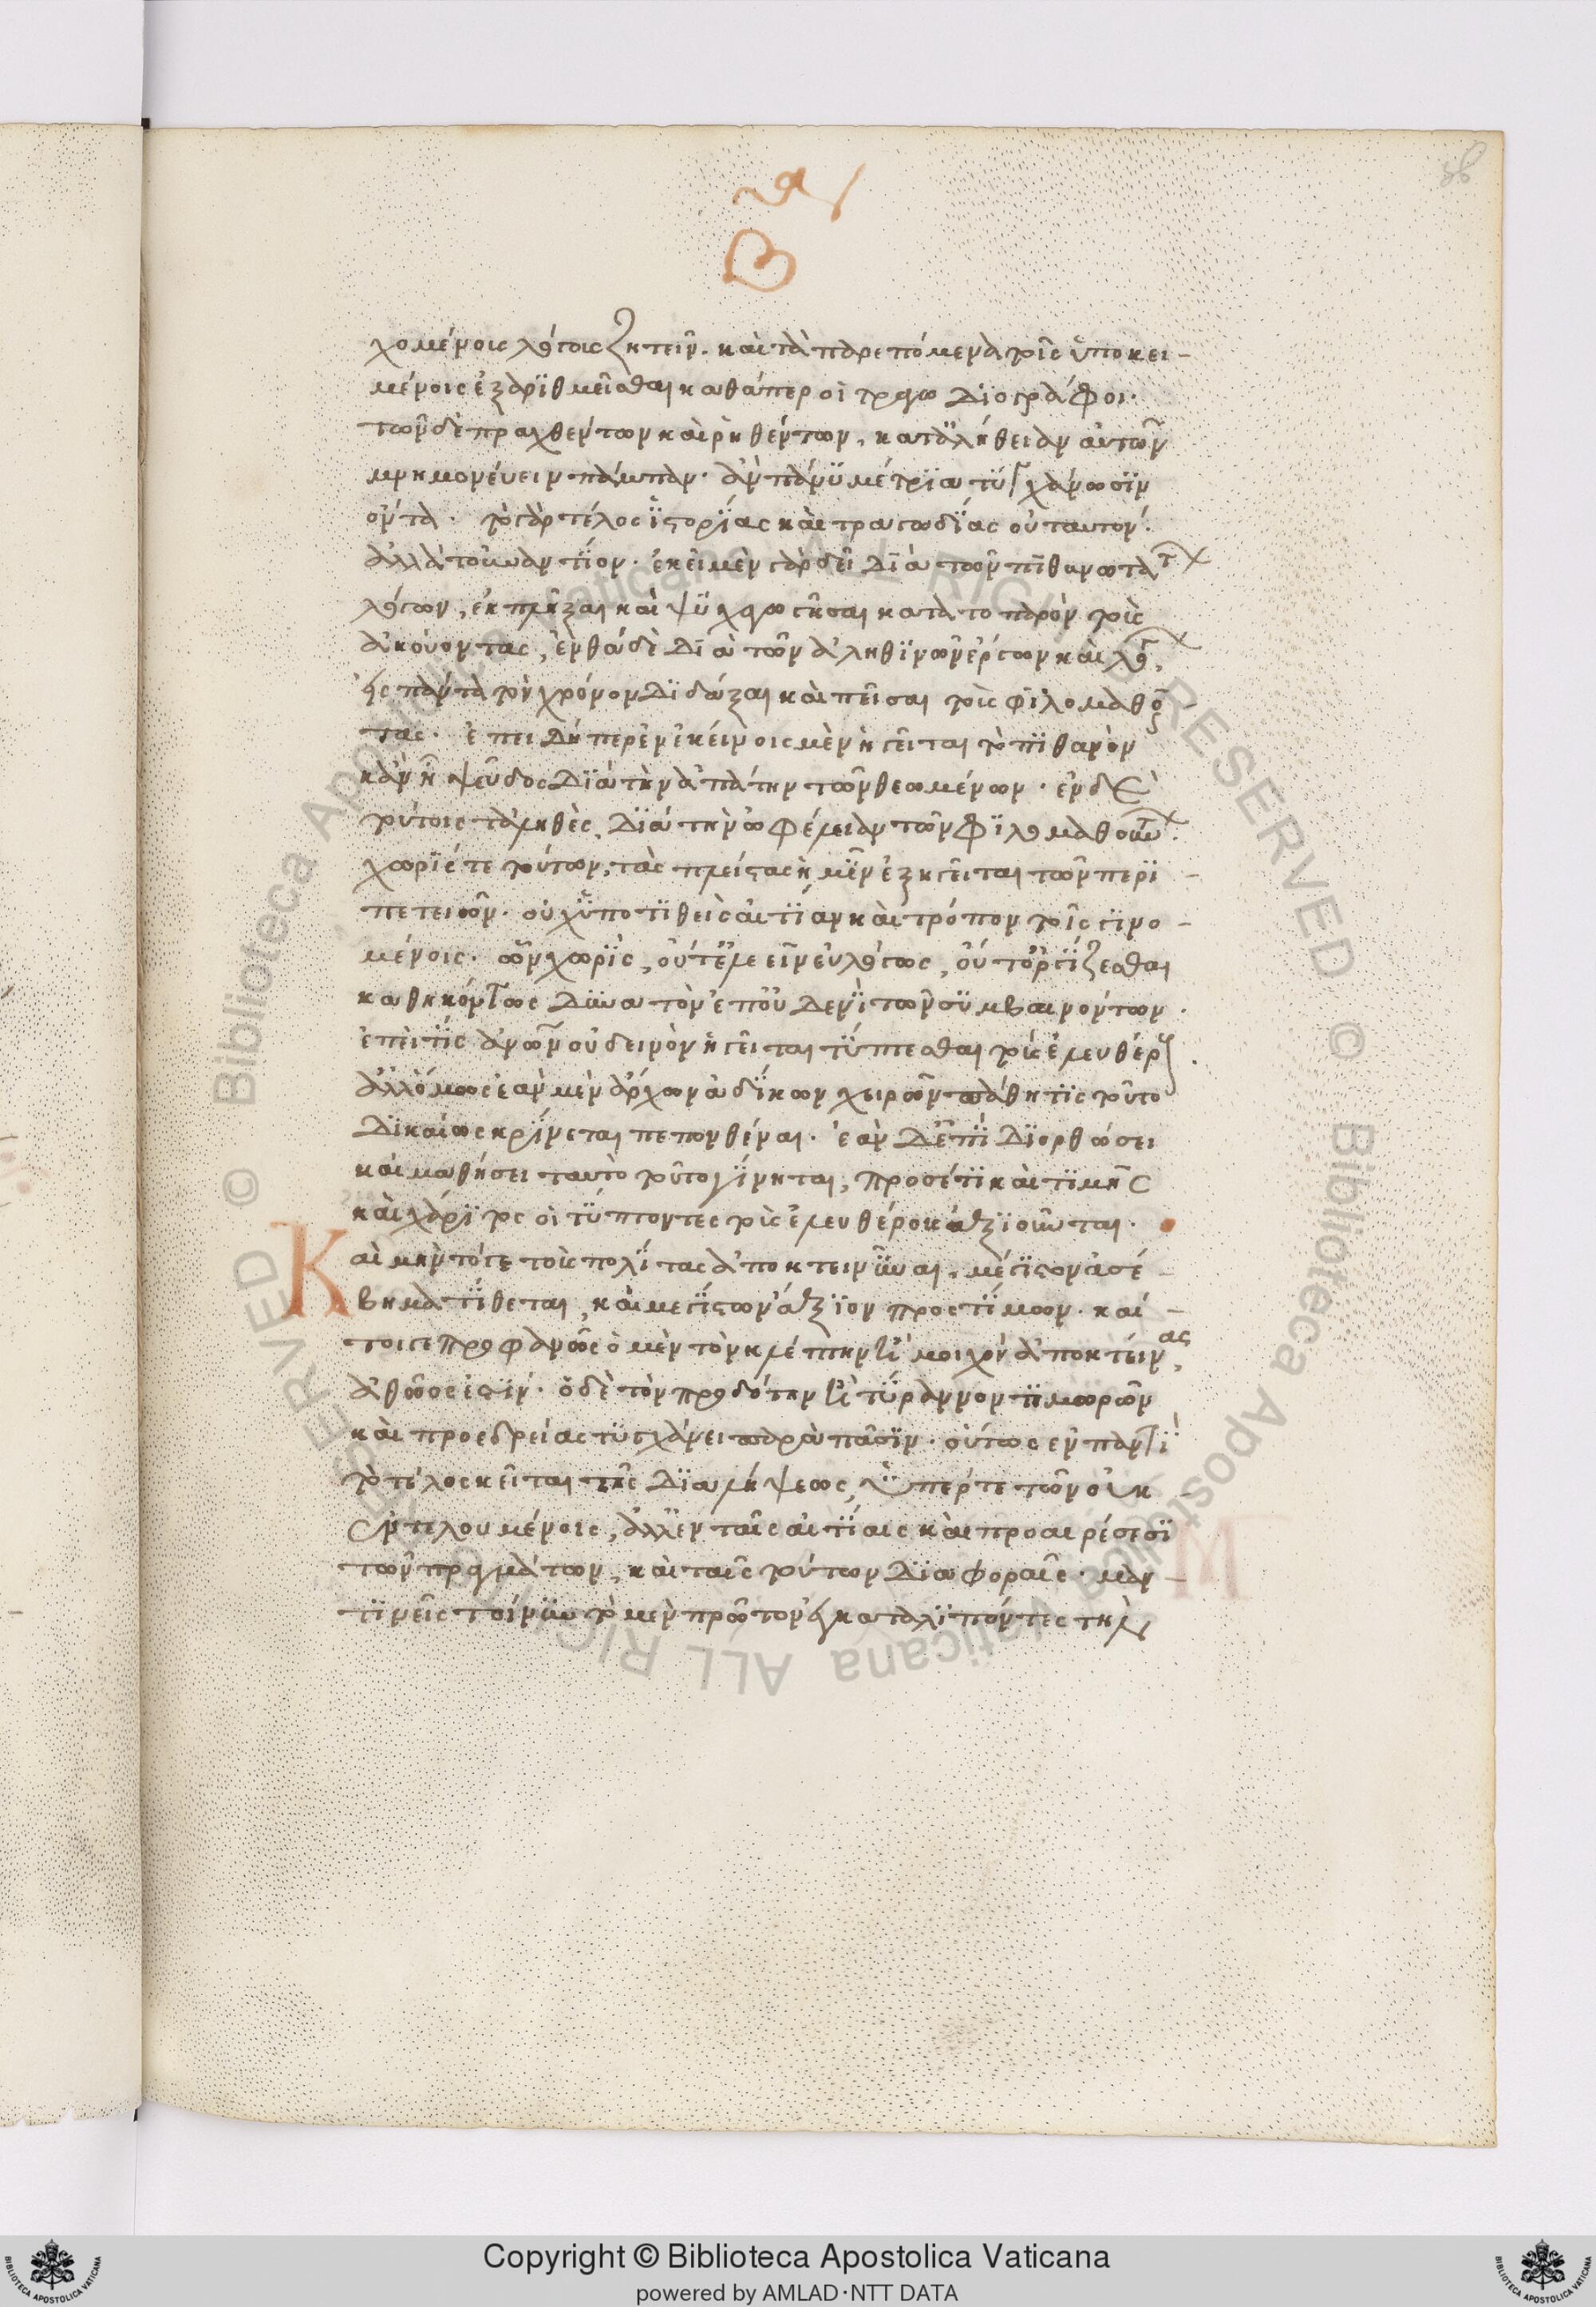 χομένοις λόγοις ζητεῖν. καὶ τὰ παρεπόμενα τοῖς ὑποκει-
μένοις ἐξαριθμεῖσθαι καθάπερ οἱ τραγωδιογράφοι.
τῶν δὲ πραχθέντων καὶ ῥηθέντων, κατ' ἀλήθειαν αὐτῶν
μνημονεύειν πάμπαν. ἂν πάνυ μέτρια τυγχάνωσϊν
ὄντα. τὸ γὰρ τέλος ἱστορίας καὶ τραγωδίας οὐ ταυτόν.
ἀλλὰ τοὐναντίον. ἐκεῖ μὲν γὰρ δεῖ διὰ τῶν πιθανωτάτων
λόγων, ἐκπλῆξαι καὶ ψυχαγωγῆσαι κατὰ το παρὸν τοὺς
ἀκούοντας, ἐνθάδὲ διὰ τῶν ἀληθινῶν ἔργων καὶ λόγων,
εἰς πάντα τὸν χρόνον διδάξαι καὶ πεῖσαι τοὺς φιλομαθοῦν-
τας. ἐπειδήπερ ἐν ἐκείνοις μὲν ἡγεῖται τὸ πιθανὸν
κἂν ἦ ψεῦδος διὰ τὴν ἀπάτην τῶν θεωμένων. ἐν δὲ
τούτοις τἀληθὲς, διὰ τὴν ὠφέλειαν τῶν φιλομαθούντων.
χωρίς τε τούτων, τὰς πλείστας ἡμῖν ἐξηγεῖται τῶν περι-
πετειῶν. οὐχ ὑποτιθεὶς αἰτίαν καὶ τρόπον τοῖς γινο-
μένοις. ὧν χωρὶς, οὔτ' ἐλεεῖν εὐλόγως, οὔτ' ὀργίζεσθαι
καθηκόντως δυνατὸν ἐπ' οὐδενὶ τῶν συμβαινόντων.
ἐπεὶ τίς ἀνθρώπων οὐ δεινὸν ἡγεῖται τύπτεσθαι τοὺς ἐλευθέρους.
ἀλλ' ὅμως ἐὰν μὲν ἄρχων ἀδίκων χειρῶν πάθη τις τοῦτο
δικαίως κρίνεται πεπονθέναι. ἐὰν δ' ἐπὶ διορθώσει
καὶ μαθήσει ταυτὸ τοῦτο γίνηται, προσέτι καὶ τιμῆς
καὶ χάριτος οἱ τύπτοντες τοὺς ἐλευθέρους ἀξιοῦνται.
Καὶ μὴν τό γε τοὺς πολίτας ἀποκτειννύναι, μέγιστον ἀσέ-
βημα τίθεται, καὶ μεγίστων ἄξιον προστίμων. καί-
τοι γε προφανῶς ὁ μὲν τὸν κλέπτην ἢ μοιχὸν ἀποκτείνας,
ἀθῶος ἐστϊν. ὁ δὲ τὸν προδότην ἢ τύραννον τιμωρῶν
καὶ προεδρείας τυγχάνει παρὰ πᾶσϊν. οὕτως ἐν παντὶ
τὸ τέλος κεῖται τῆς διαλήψεως, ὑπέρ τε τῶν οὐκ
ἐν τελουμένοις, ἀλλ' ἐν ταῖς αἰτίαις καὶ προαιρέσεσϊ
τῶν πραγμάτων, καὶ ταῖς τούτων διαφοραῖς. μαν-
τινεῖς τοίνυν τὸ μὲν πρῶτον ἐγκαταλιπόντες τὴν